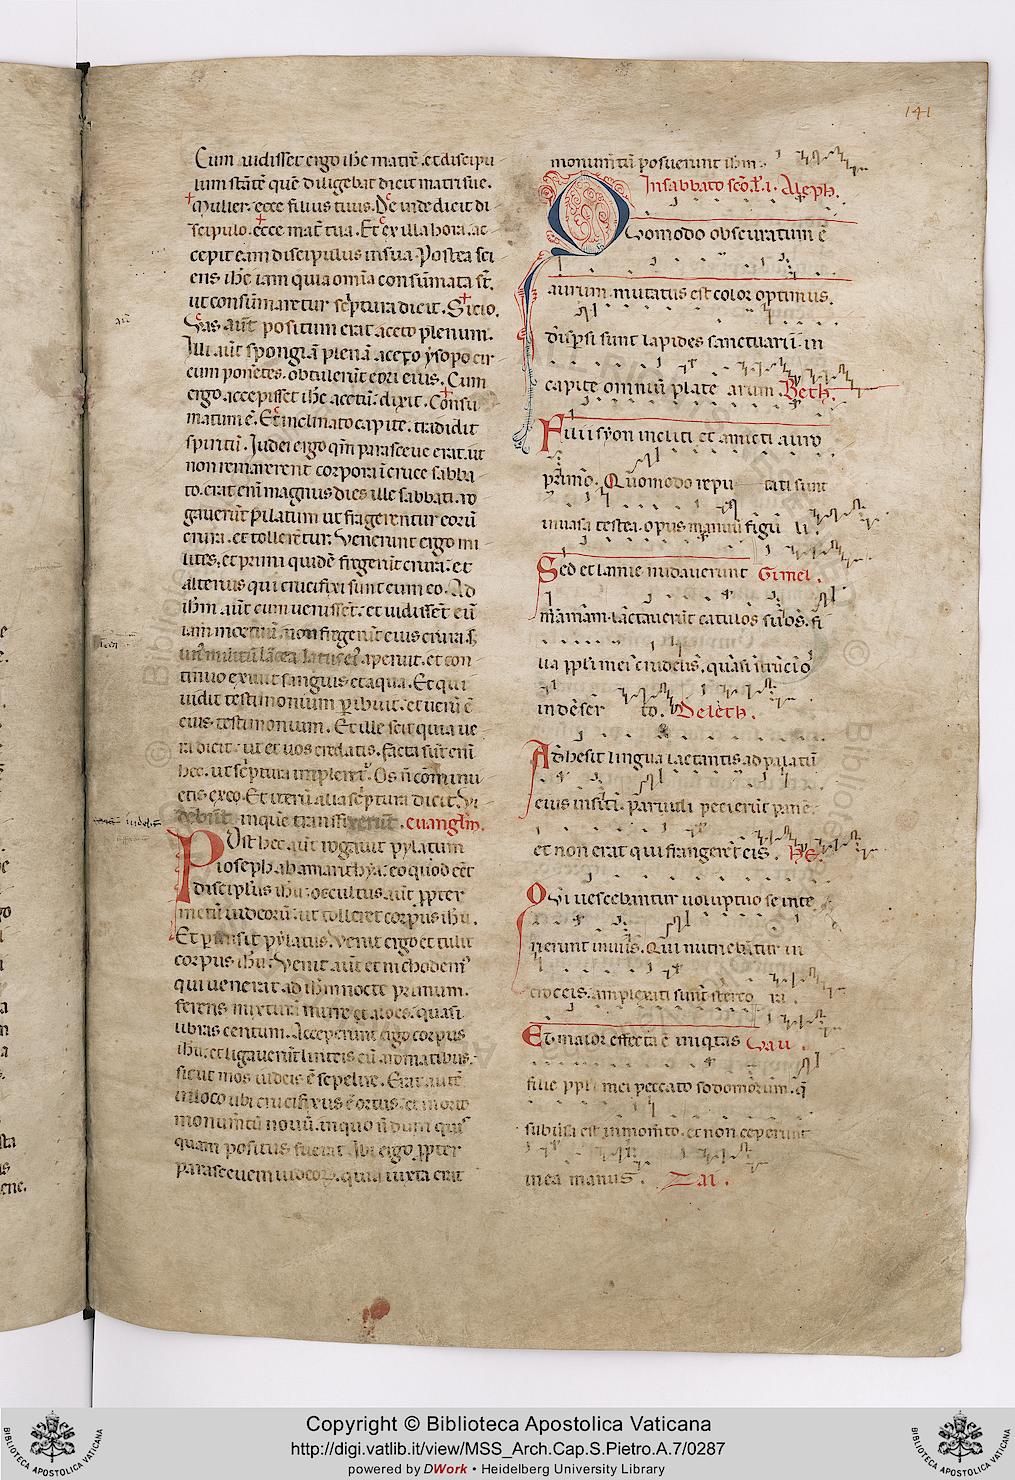 141
Cum uidisset ergo ihc matrē. et discipu
lum stātē quē diligebat dicit matri sue.
Mulier. ecce filius tuus. Deinde dicit di
scipulo. ecce mat̄ tua. Et ex illa hora. ac
cepit eam discipulus in sua. Postea sci
ens ihc iam quia omīa consūmata st̄.
ut consūmaretur sc̄ptura dicit. Sicio.
Uas aūt positum erat aceto plenum.
Illi aūt spongiā plenā aceto ysopo cir
cum ponētes. obtulerūt eori eius. Cum
ergo accepisset ihc acetū: dixit. Consu
matum ē. Et inclinato capite. tradidit
spiritū. Iudei ergo qm̄ parasceue erat. ut
non remanerent corpora ī cruce sabba
to. erat enī magnus dies ille sabbati. ro
gauerūt pilatum ut frāgerentur eorū
crura. et tollerētur. Uenerunt ergo mi
lites. et primi quidē fregerūt crura: et
alterius qui crucifixi sunt cum eo. Ad
ihm aūt cum uenissēt: et uidissēt eū
iam mortuū. non fregerūt eius crura. s;
un' militū lācea latus ei' aperuit. et con
tinuo exiuit sanguis et aqua. Et qui
uidit testimonium phibuit: et uerū ē
eius testimonium. Et ille scit quia ue
ra dicit: ut et uos credatis. facta sūt enī
hec. ut sc̄ptura impleret'. Os n̄ cōminu
etis ex eo. Et iterū alia sc̄ptura dicit. Ui
debūt in que transfixerūt. euangłm.
Post hec aūt rogauit pylatum
ioseph ab aramathya: eo quod eēt
disciplus ihu: occultus aūt ppter
metū iudeorū: ut tolleret corpus ihu.
Et pmisit pylatus. Uenit ergo et tulit
corpus ihu. Uenit aūt et nichodem'
qui uenerat ad ihm nocte primum.
ferens mixturā mirre et aloes: quasi
libras centum. Acceperunt ergo corpus
ihu: et ligauerūt linteis eū aromatibus.
sicut mos iudeis ē sepelire. Erat autē
in loco ubi crucifixus ē ortus: et in orto
monumtū nouū. in quo n̄dum quis'
quam positus fuerat. Ibi ergo ppter
parasceuem iudeoꝝ. quia iuxta erat
monumtū posuerunt ihm.
In sabbato scō. ł. i. Aleph.
Quomodo obscuratum ē
aurum. mutatus est color optimus.
dispsi sunt lapides sanctuarii. in
capite omniū platearum. Beth.
Filii syon incliti. et amicti auro
primo. Quomodo reputati sunt
in uasa testea. opus manuū figuli.
Sed et lamie nudauerunt Gimel.
mamam. lactauerūt catulos suos. fi
lia ppli mei crudelis. quasi structio
in deserto. Deleth.
Adhesit lingua lactantis ad palatū
eius in siti. paruuli pecierūt panē.
et non erat qui frangeret eis. He.
Qui uescebantur uoluptuose inte
rierunt in uiis. Qui nutriebātur in
croceis. amplexati sunt stercora.
Et maior effecta ē iniqtas Uau.
filie ppli mei peccato sodomorum. q̄
subūsa est in momēto. et non ceperunt
in ea manus. Zai.
Copyright © Biblioteca Apostolica Vaticana
http://digi.vatlib.it/view/MSS_Arch.Cap.S.Pietro.A.7/0287
powered by DWork • Heidelberg University Library
BIBLIOTECA APOSTOLICA VATICANA
BIBLIOTECA APOSTOLICA VATICANA